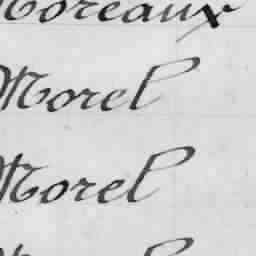 Moreaux
Morel
Morel